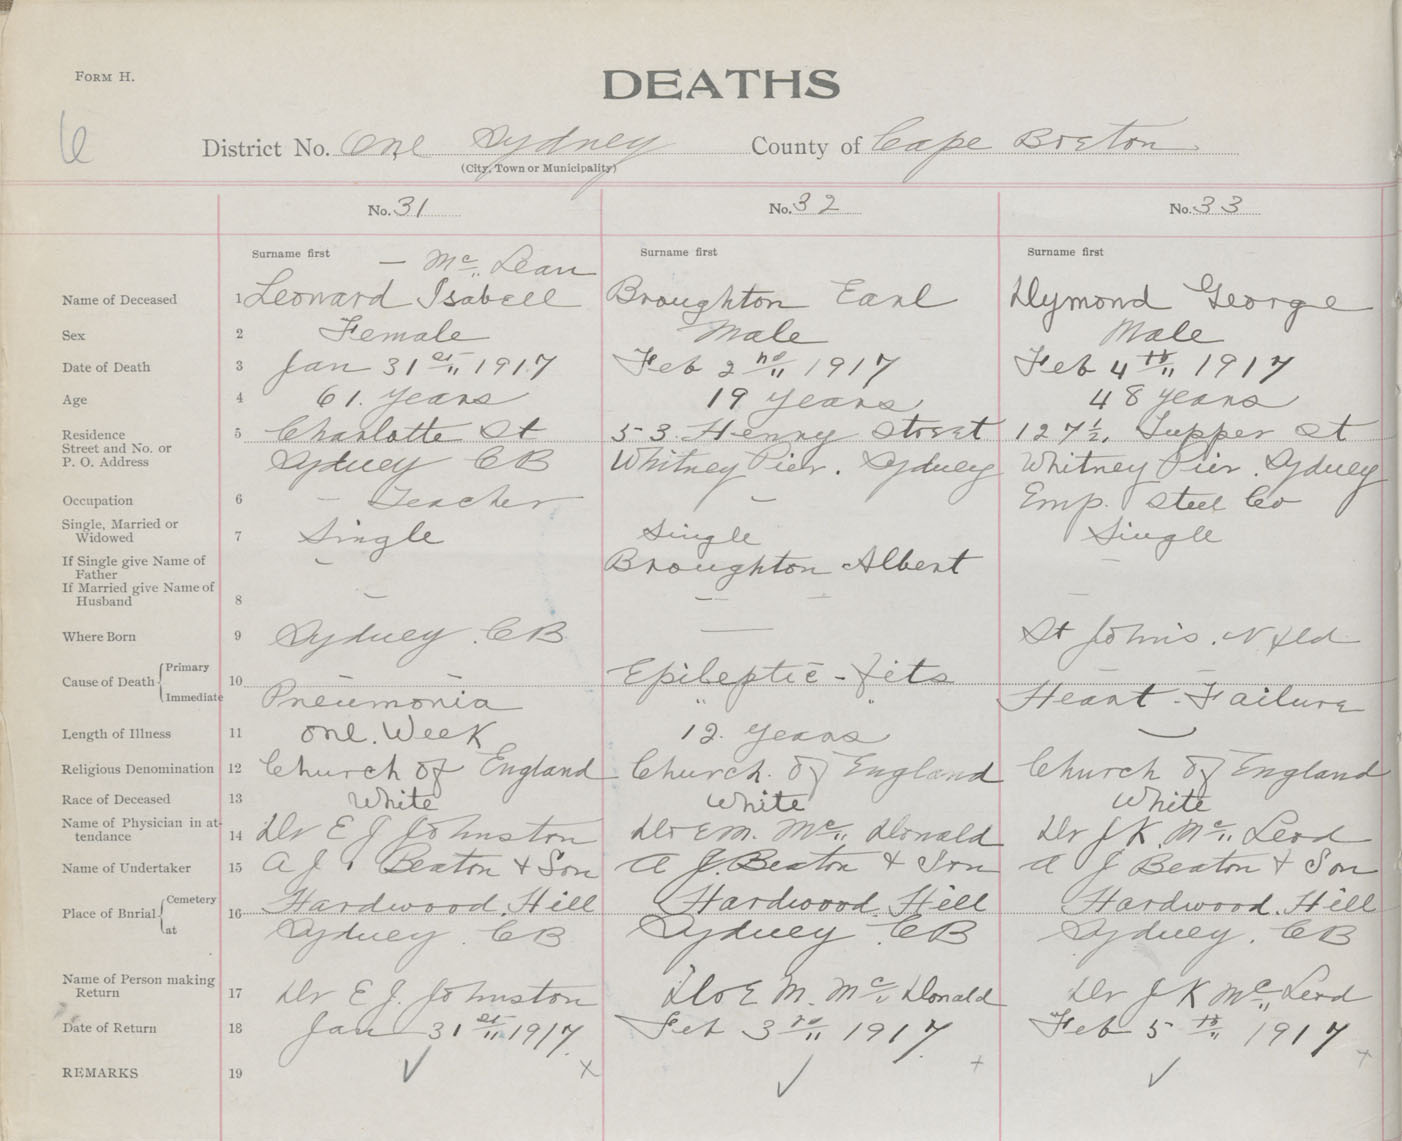 FORM H.
DEATHS
6
District No. One Sydney County of Cape Breton
(City, Town or Municipality)
No. 31 No. 32 No. 33
Surname first Surname first Surname first
— Mc Lean
Name of Deceased 1 Leonard Isabell Broughton Earl Dymond George
Sex 2 Female Male Male
Date of Death 3 Jan 31st 1917 Feb 2nd 1917 Feb 4th 1917
Age 4 61. years 19 years 48 years
Residence 5 Charlotte St 53. Henry Street 127½. Tupper St
Street and No. or
P. O. Address Sydney CB Whitney Pier. Sydney Whitney Pier. Sydney
Occupation 6 – Teacher – Emp. Steel Co
Single, Married or
Widowed 7 Single Single Single
If Single give Name of
Father – Broughton Albert –
If Married give Name of
Husband 8 – – – –
Where Born 9 Sydney. CB — St John's. Nfld
Cause of Death Primary 10 – – Epileptic - fits – –
Immediate Pneumonia " " Heart - Failure
Length of Illness 11 one. Week 12. years –
Religious Denomination 12 Church of England Church. of England Church of England
Race of Deceased 13 White White White
Name of Physician in at-
tendance 14 Dr E J Johnston Dr E M. Mc Donald Dr J K. Mc Leod
Name of Undertaker 15 A J. Beaton & Son A J. Beaton & Son A J Beaton & Son
Place of Burial Cemetery 16 Hardwood. Hill Hardwood. Hill Hardwood. Hill
at Sydney. CB Sydney. CB Sydney. CB
Name of Person making
Return 17 Dr E J. Johnston Dr E M. Mc Donald Dr J K Mc Leod
Date of Return 18 Jan 31st 1917. Feb 3rd 1917. Feb 5th 1917
REMARKS 19 ✓ x ✓ + ✓ x